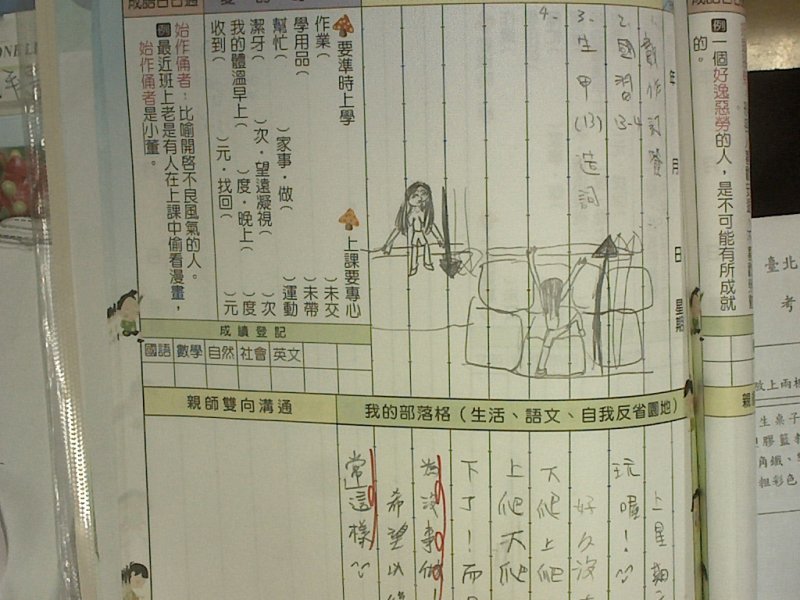 例 一個好逸惡勞的人，是不可能有所成就
的。
年 月 日 星期
1. 創作
2. 國習13-4
3. 生甲(13)造詞
4.
要準時上學 上課要專心
作業( )未交
學用品( )未帶
幫忙( )家事．做( )運動
潔牙( )次．望遠凝視( )次
我的體溫早上( )度．晚上( )度
收到( )元．找回( )元
始作俑者：比喻開啓不良風氣的人。
例 最近班上老是有人在上課中偷看漫畫，
始作俑者是小董。
成績登記
國語 數學 自然 社會 英文
親師雙向溝通
我的部落格（生活、語文、自我反省園地）
上星期
玩喔！
好久沒
大爬上爬
上爬大爬
下了！而
為沒事做！
希望以後
常這樣
臺北
考
放上兩
生桌子
膠籃
角鐵、
粗彩色